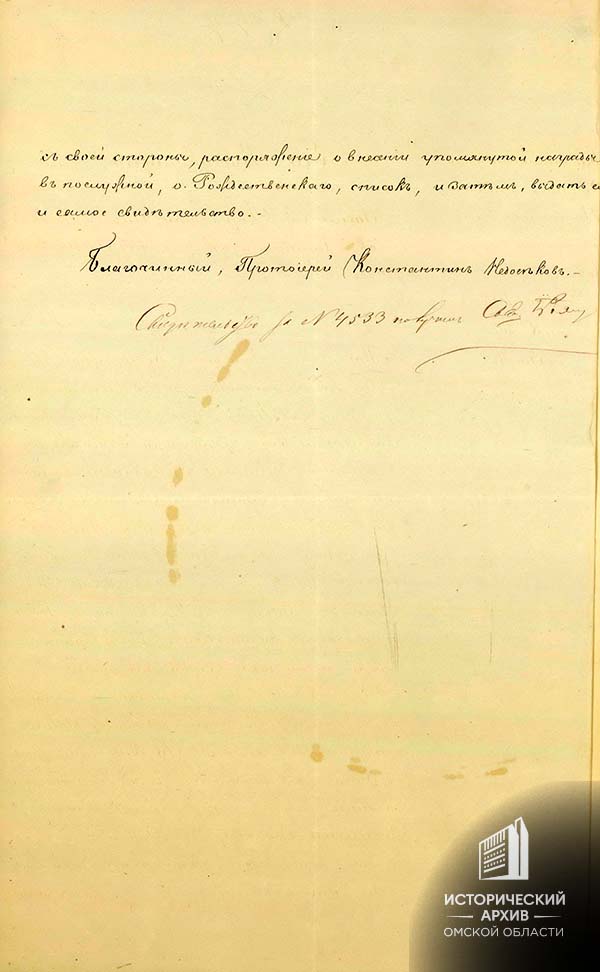 съ своей стороны, распоряженіе о внесеніи упомянутой награды
въ послужной, о. Рождественскаго, списокъ, и затѣмъ, выдать е
и самое свидѣтельство.-
Благочинный, Протоіерей Константинъ Недосѣковъ.-
Свидѣтельство за № 4533 получилъ
ИСТОРИЧЕСКИЙ
АРХИВ
ОМСКОЙ ОБЛАСТИ